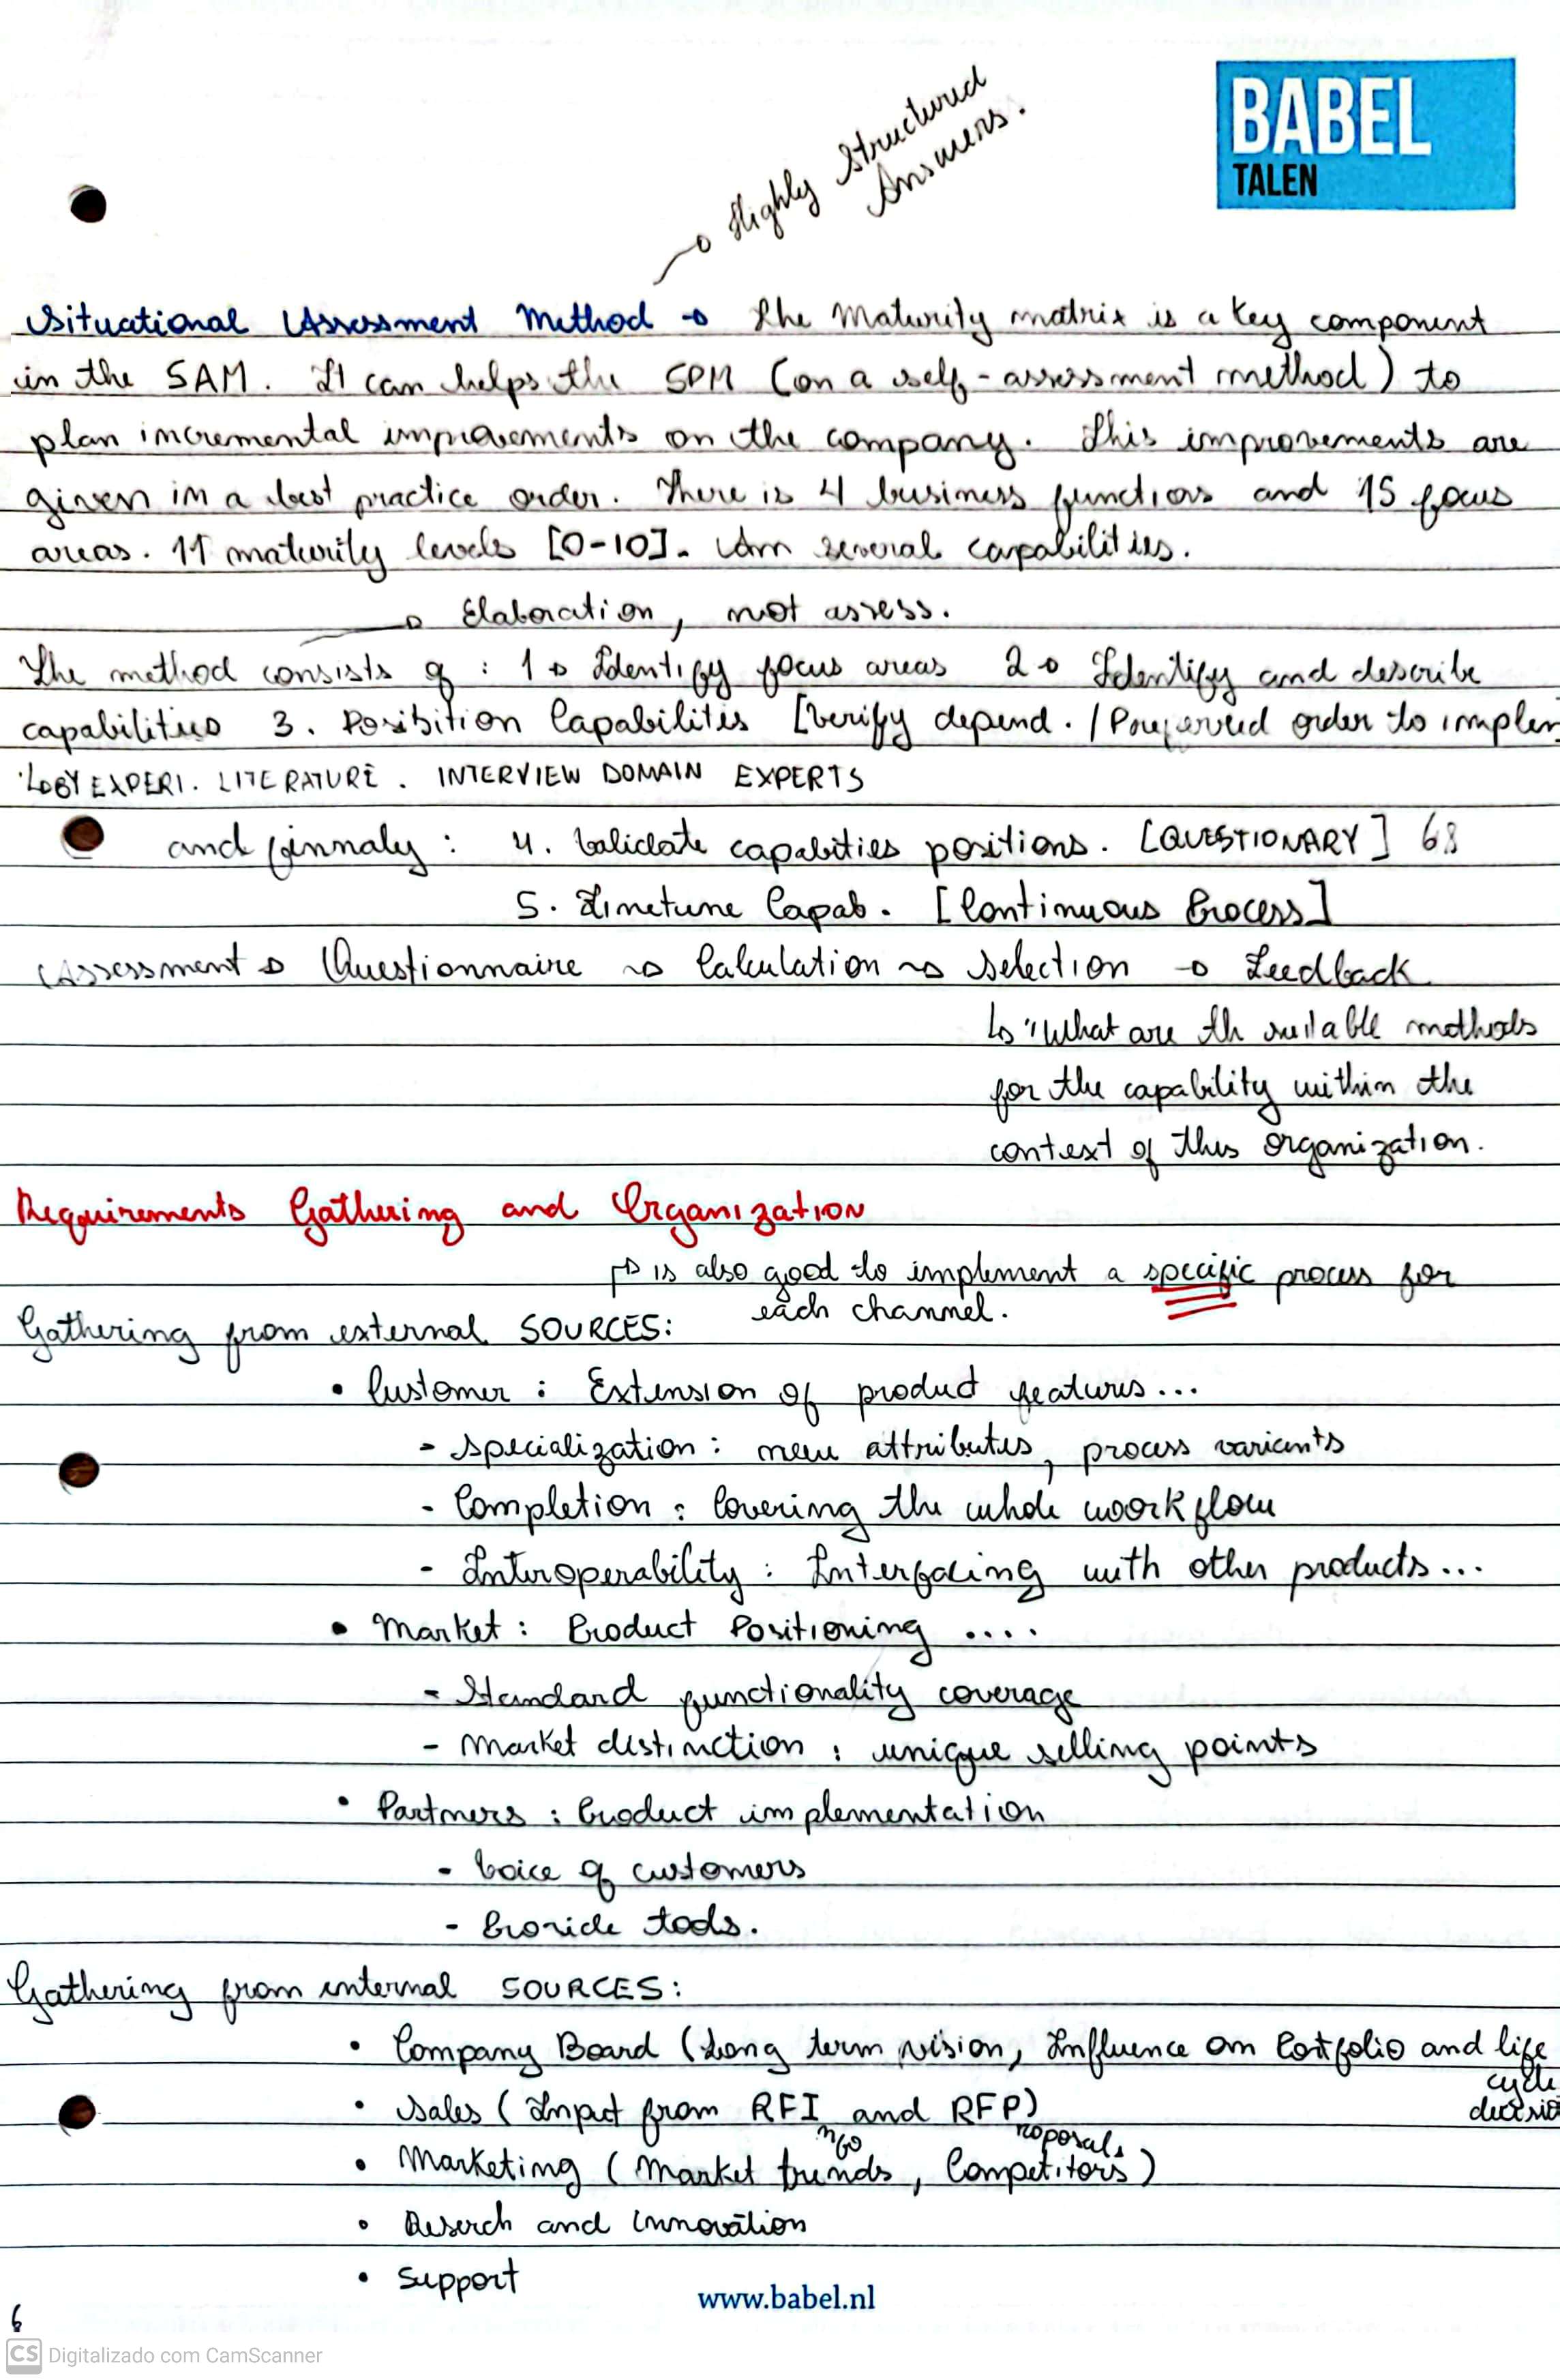 BABEL
TALEN
Highly Structured
Answers.
Situational Assessment Method → The Maturity matrix is a key component
in the SAM. It can helps the SPM (on a self-assessment method) to
plan incremental improvements on the company. This improvements are
given in a best practice order. There is 4 business functions and 15 focus
areas. 11 maturity levels [0-10]. An several capabilities.
→ Elaboration, not assess.
The method consists of : 1→ Identify focus areas 2→ Identify and describe
capabilities 3. Posibition Capabilites [Verify depend. / Preferred order to implem
↳ BY EXPERI. LITERATURE. INTERVIEW DOMAIN EXPERTS
and finnaly : 4. Validate capabities positions. [QUESTIONARY] 68
5. Finetune Capab. [Continuous Process]
Assessment → Questionnaire → Calculation → Selection → Feedback
↳ "What are th suitable methods
for the capability within the
context of this organization.
Requirements Gathering and Organization
↱ is also good to implement a specific process for
each channel.
Gathering from external SOURCES:
• Customer : Extension of product features...
- Specialization : new attributes, process variants
- Completion : Covering the whole workflow
- Interoperability : Interfacing with other products...
• Market : Product Positioning ....
- Standard functionality coverage
- Market distinction : unique selling points
• Partners : Product implementation
- Voice of customers
- Provide tools.
Gathering from internal SOURCES:
• Company Board (Long term vision, Influence on Portfolio and life
cycle
decisio
• Sales (Input from RFI and RFP)
nfo roposals
• Marketing (Market trends, Competitors)
• Reserch and innovation
• Support
www.babel.nl
6
CS Digitalizado com CamScanner